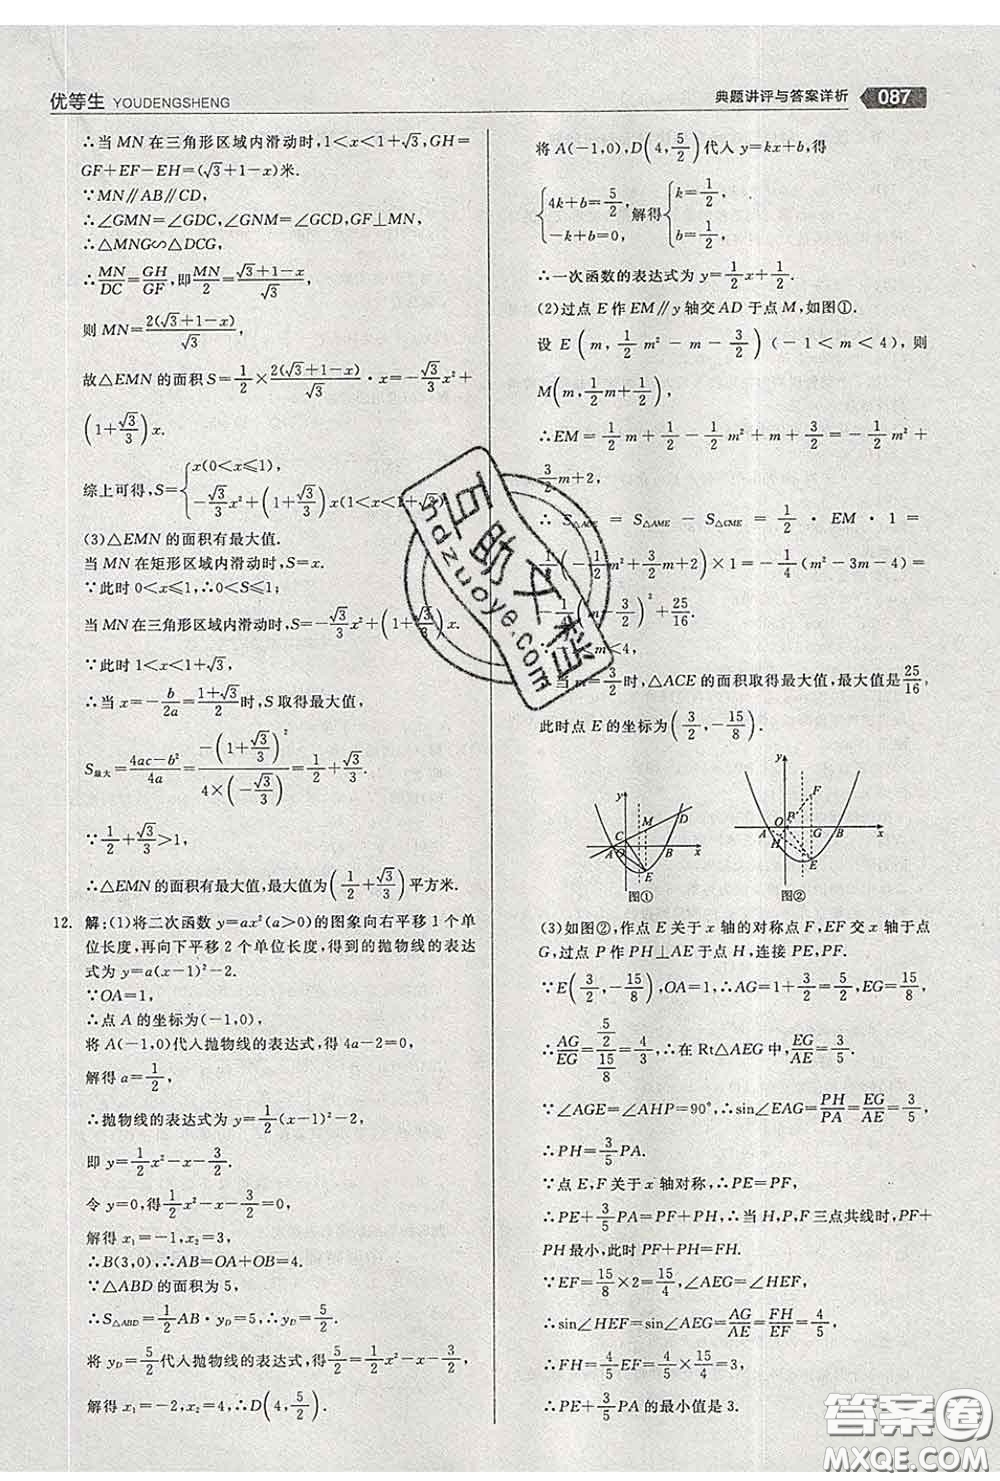 优等生 YOUDENGSHENG
典题讲评与答案详析 087
∴当 MN 在三角形区域内滑动时,1<x<1+√3,GH=
GF+EF-EH=(√3+1-x)米.
∵MN∥AB∥CD,
∴∠GMN=∠GDC,∠GNM=∠GCD,GF⊥MN,
∴△MNG∽△DCG,
∴MN/DC=GH/GF,即MN/2=(√3+1-x)/√3,
则 MN=2(√3+1-x)/√3,
故△EMN 的面积 S=1/2×2(√3+1-x)/√3·x=-√3/3x²+
(1+√3/3)x.
综上可得,S={x(0<x≤1), -√3/3x²+(1+√3/3)x(1<x<1+√3).
(3)△EMN 的面积有最大值.
当 MN 在矩形区域内滑动时,S=x.
∵此时 0<x≤1,∴0<S≤1;
当 MN 在三角形区域内滑动时,S=-√3/3x²+(1+√3/3)x.
∵此时 1<x<1+√3,
∴当 x=-b/2a=(1+√3)/2时,S 取得最大值,
S最大=(4ac-b²)/4a=-(1+√3/3)²/(4×(-√3/3))=1/2+√3/3.
∵1/2+√3/3>1,
∴△EMN 的面积有最大值,最大值为(1/2+√3/3)平方米.
12. 解:(1)将二次函数 y=ax²(a>0)的图象向右平移 1 个单
位长度,再向下平移 2 个单位长度,得到的抛物线的表达
式为 y=a(x-1)²-2.
∵OA=1,
∴点 A 的坐标为(-1,0),
将 A(-1,0)代入抛物线的表达式,得 4a-2=0,
解得 a=1/2,
∴抛物线的表达式为 y=1/2(x-1)²-2,
即 y=1/2x²-x-3/2.
令 y=0,得1/2x²-x-3/2=0,
解得 x₁=-1,x₂=3,
∴B(3,0),∴AB=OA+OB=4.
∵△ABD 的面积为 5,
∴S△ABD=1/2AB·y_D=5,∴y_D=5/2.
将 y_D=5/2代入抛物线的表达式,得5/2=1/2x²-x-3/2,
解得 x₁=-2,x₂=4,∴D(4,5/2).
将 A(-1,0),D(4,5/2)代入 y=kx+b,得
{4k+b=5/2, -k+b=0, 解得{k=1/2, b=1/2,
∴一次函数的表达式为 y=1/2x+1/2.
(2)过点 E 作 EM∥y 轴交 AD 于点 M,如图①.
设 E(m,1/2m²-m-3/2)(-1<m<4),则
M(m,1/2m+1/2),
∴EM=1/2m+1/2-1/2m²+m+3/2=-1/2m²+
3/2m+2,
∴S△ACE=S△AME-S△CME=1/2·EM·1=
1/2(-1/2m²+3/2m+2)×1=-1/4(m²-3m-4)=
-1/4(m-3/2)²+25/16.
m<4,
∴当 m=3/2时,△ACE 的面积取得最大值,最大值是25/16,
此时点 E 的坐标为(3/2,-15/8).
y M D C A O B x E
图①
y F O P A H G B x E
图②
(3)如图②,作点 E 关于 x 轴的对称点 F,EF 交 x 轴于点
G,过点 P 作 PH⊥AE 于点 H,连接 PE,PF.
∵E(3/2,-15/8),OA=1,∴AG=1+3/2=5/2,EG=15/8,
∴AG/EG=(5/2)/(15/8)=4/3,∴在 Rt△AEG 中,EG/AE=3/5.
∵∠AGE=∠AHP=90°,∴sin∠EAG=PH/PA=EG/AE=3/5,
∴PH=3/5PA.
∵点 E,F 关于 x 轴对称,∴PE=PF,
∴PE+3/5PA=PF+PH,∴当 H,P,F 三点共线时,PF+
PH 最小,此时 PF+PH=FH.
∵EF=15/8×2=15/4,∠AEG=∠HEF,
∴sin∠HEF=sin∠AEG=AG/AE=FH/EF=4/5,
∴FH=4/5EF=4/5×15/4=3,
∴PE+3/5PA 的最小值是 3.
互助文档
hdzuoye.com
答案圈
MXQE.COM